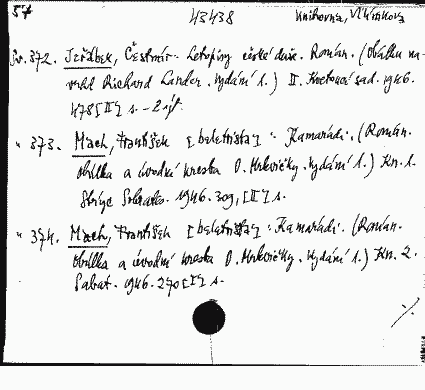 57 43438 Knihovna, Vl. Vinklova
Sv. 372. Jeřábek, Čestmír. Letopisy české duše. Román. (Obálku na-
vrhl Richard Lander. Vydání 1.) II. Kvetoucí sad. 1946.
478 [II] s. – 2 výt.
" 373. Mach, František [beletrista]: Kamarádi. (Román.
Obálka a úvodní kresba O. Mrkvičky. Vydání 1.) Kn. 1.
Strýc Sokrates. 1946. 309, [II] s.
" 374. Mach, František [beletrista]: Kamarádi. (Román.
Obálka a úvodní kresba O. Mrkvičky. Vydání 1.) Kn. 2.
Sabat. 1946. 270 [I] s.